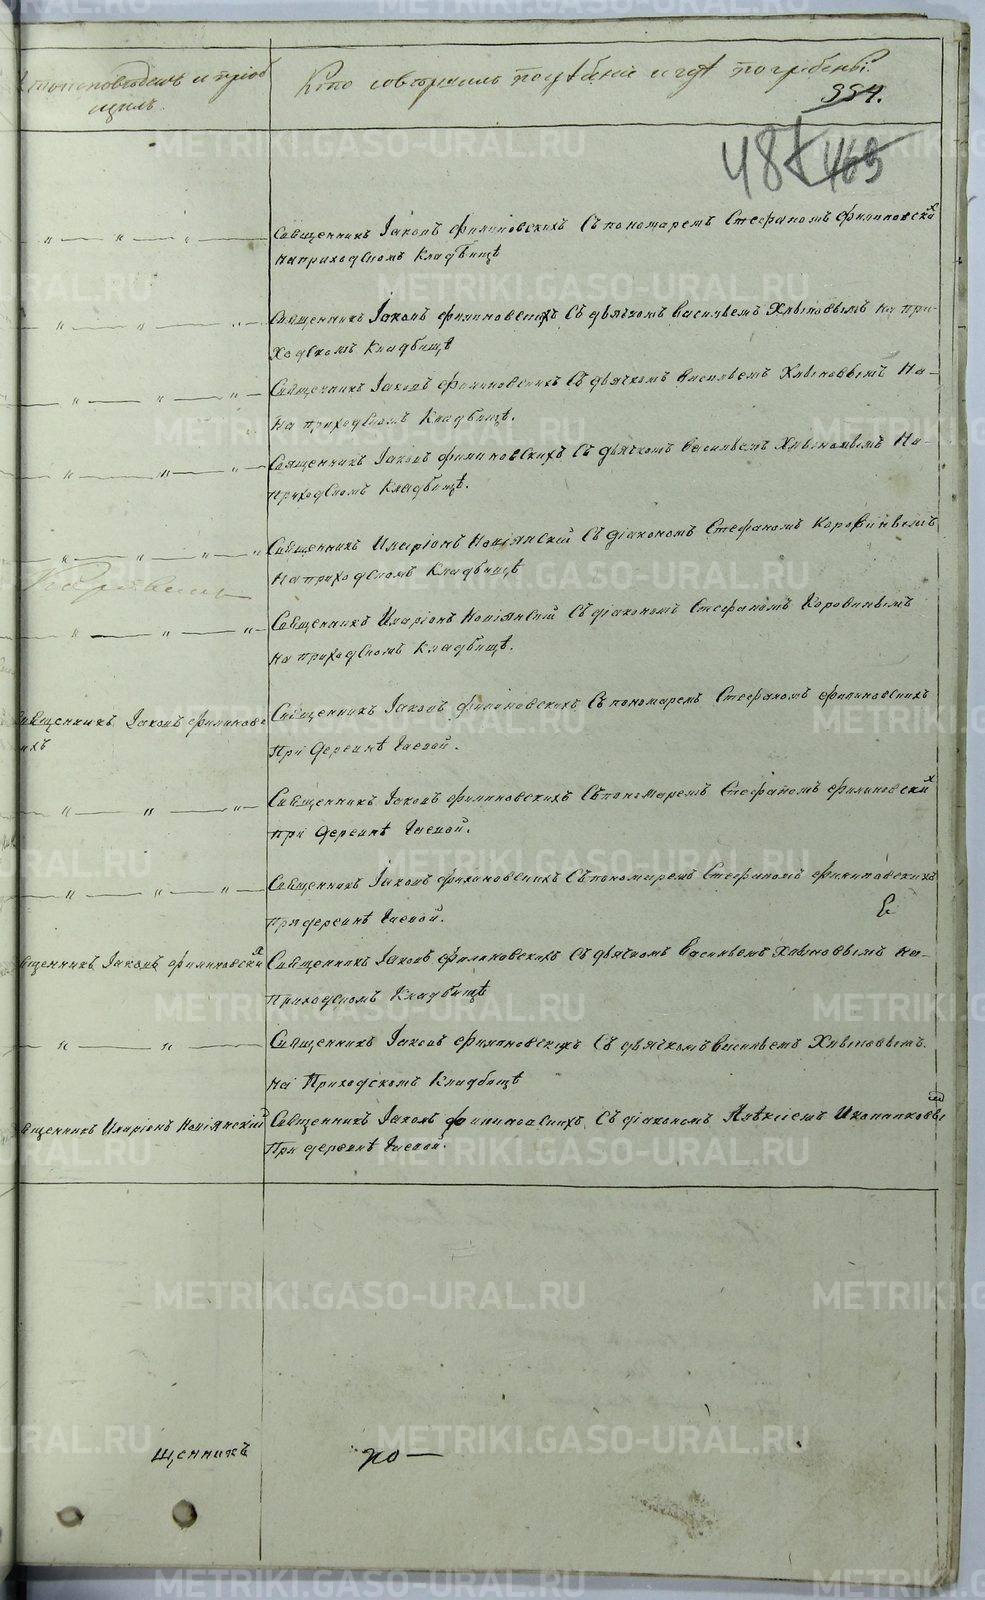 Кто исповѣдалъ и пріоб
щилъ.
Кто совершилъ погребеніе и гдѣ погребены.
354.
481 469
Священникъ Іаковъ Филиповскихъ Съ пономаремъ Стефаномъ Филиповскихъ
на приходскомъ Кладбищѣ
Священникъ Іаковъ Филиповскихъ Съ дьячкомъ Васильемъ Хлыновымъ на при-
ходскомъ Кладбищѣ
Священникъ Іаковъ Филиповскихъ Съ дьячкомъ Васильемъ Хлыновымъ На-
На приходскомъ Кладбищѣ.
Священникъ Іаковъ Филиповскихъ Съ дьячкомъ Васильемъ Хлыновымъ На-
приходскомъ Кладбищѣ.
Священникъ Иларіонъ Съ діакономъ Стефаномъ Коровинымъ
На приходскомъ Кладбищѣ
Священникъ Иларіонъ Съ діакономъ Стефаномъ Коровинымъ
на приходскомъ Кладбищѣ.
Священникъ Іаковъ Филиповс
ихъ
Священникъ Іаковъ Филиповскихъ Съ пономаремъ Стефаномъ Филиповскихъ
При деревнѣ Гаевой.
Священникъ Іаковъ Филиповскихъ Съ пономаремъ Стефаномъ Филиповскихъ
При деревнѣ Гаевой.
Священникъ Іаковъ Филиповскихъ Съ пономаремъ Стефаномъ Филиповскихъ
При деревнѣ Гаевой.
ященникъ Іаковъ Филиповскихъ
Священникъ Іаковъ Филиповскихъ Съ дьячкомъ Васильемъ Хлыновымъ на-
Приходскомъ Кладбищѣ
Священникъ Іаковъ Филиповскихъ Съ дьячкомъ Васильемъ Хлыновымъ.
на Приходскомъ Кладбищѣ
ященникъ Иларіонъ
Священникъ Іаковъ Филиповскихъ Съ діакономъ
При деревнѣ Гаевой.
щенникъ
METRIKI.GASO-URAL.RU